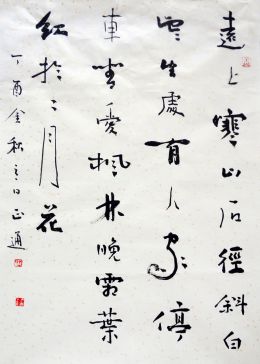 遠上寒山石徑斜白
雲生處有人家停
車坐愛楓林晚霜葉
紅於二月花
丁酉金秋日正通